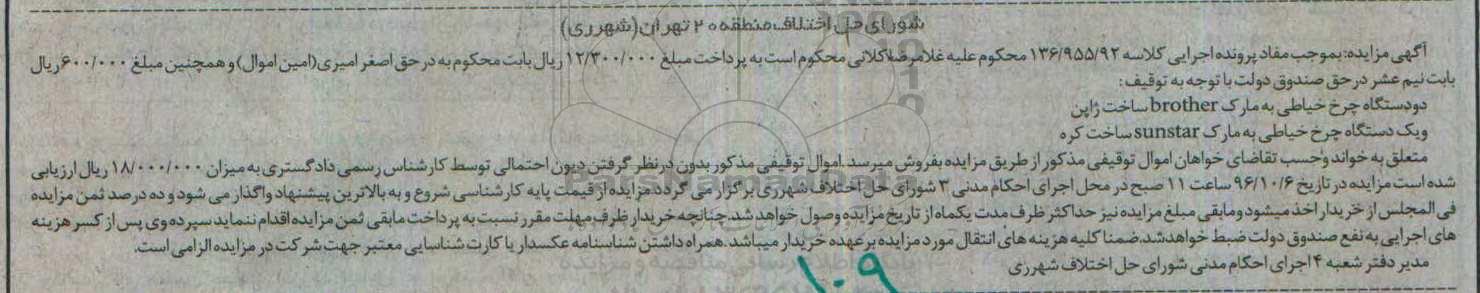 شورای حل اختلاف منطقه ۲۰ تهران (شهرری)
آگهی مزایده: بموجب مفاد پرونده اجرایی کلاسه ۱۳۶/۹۵۵/۹۲ محکوم علیه غلامرضا کلانی محکوم است به پرداخت مبلغ ۱۲/۳۰۰/۰۰۰ ریال بابت محکوم به در حق اصغر امیری (امین اموال) و همچنین مبلغ ۶۰۰/۰۰۰ ریال
بابت نیم عشر در حق صندوق دولت با توجه به توقیف:
دودستگاه چرخ خیاطی به مارک brother ساخت ژاپن
ویک دستگاه چرخ خیاطی به مارک sunstar ساخت کره
متعلق به خواند وحسب تقاضای خواهان اموال توقیفی مذکور از طریق مزایده بفروش میرسد. اموال توقیفی مذکور بدون در نظر گرفتن دیون احتمالی توسط کارشناس رسمی دادگستری به میزان ۱۸/۰۰۰/۰۰۰ ریال ارزیابی
شده است مزایده در تاریخ ۹۶/۱۰/۶ ساعت ۱۱ صبح در محل اجرای احکام مدنی ۳ شورای حل اختلاف شهرری برگزار می گردد مزایده از قیمت پایه کارشناسی شروع و به بالاترین پیشنهاد واگذار می شود و ده درصد ثمن مزایده
فی المجلس از خریدار اخذ میشود ومابقی مبلغ مزایده نیز حداکثر ظرف مدت یکماه از تاریخ مزایده وصول خواهد شد. چنانچه خریدار ظرف مهلت مقرر نسبت به پرداخت مابقی ثمن مزایده اقدام ننماید سپرده وی پس از کسر هزینه
های اجرایی به نفع صندوق دولت ضبط خواهدشد. ضمنا کلیه هزینه های انتقال مورد مزایده برعهده خریدار میباشد. همراه داشتن شناسنامه عکسدار یا کارت شناسایی معتبر جهت شرکت در مزایده الزامی است.
مدیر دفتر شعبه ۴ اجرای احکام مدنی شورای حل اختلاف شهرری
۱۰۹